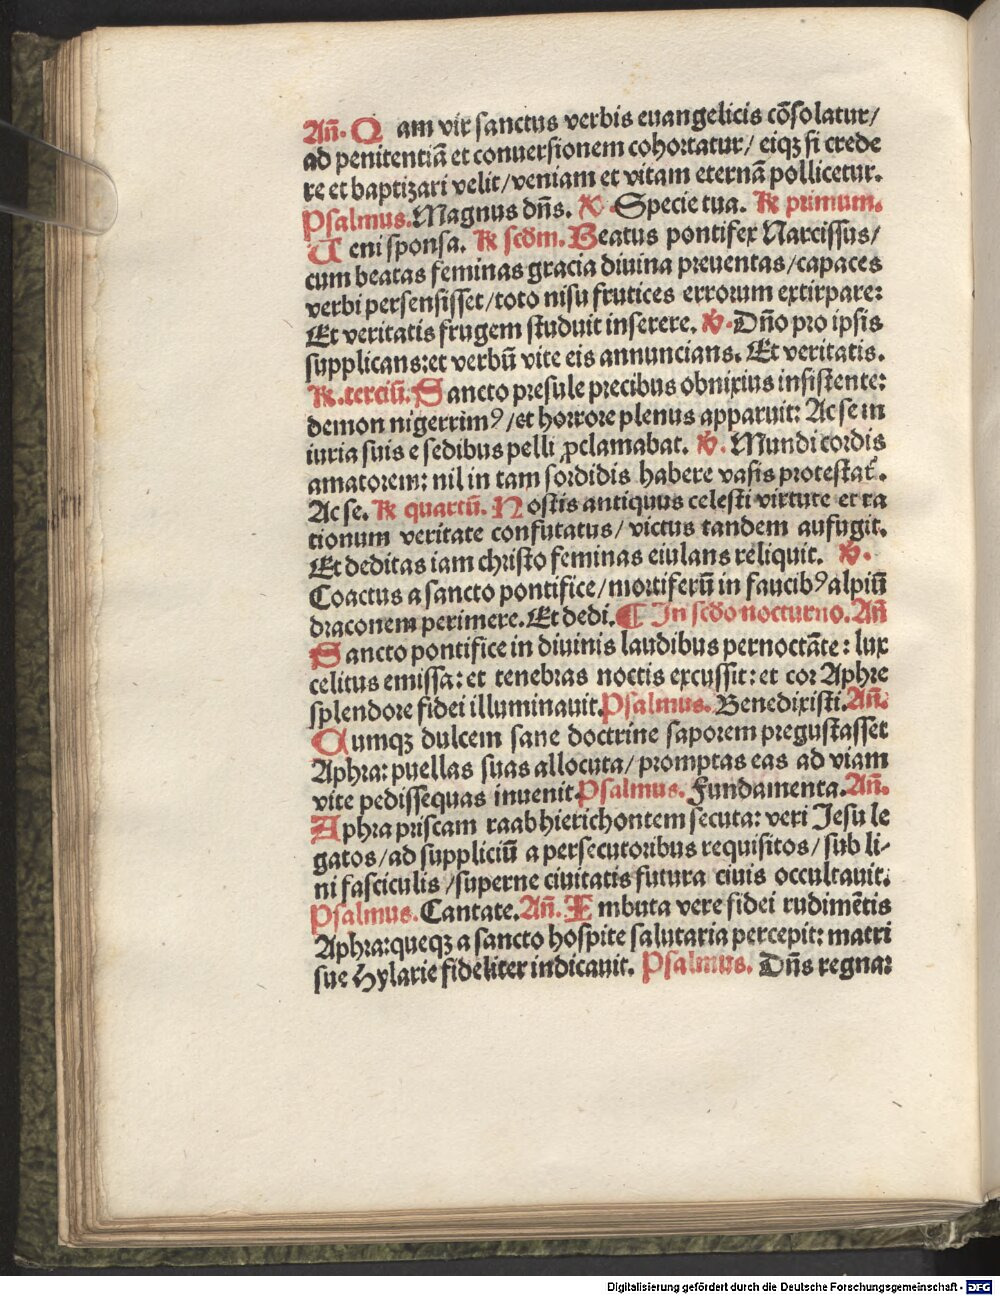 Añ. Q am vir sanctus verbis euangelicis cōsolatur/
ad penitentiā et conuersionem cohortatur/ eiqꝫ si crede
re et baptizari velit/veniam et vitam eternā pollicetur.
Psalmus. Magnus dn̄s. ℣. Specie tua. ℟ primum.
U eni sponsa. ℟ scd̄m. Beatus pontifex Narcissus/
cum beatas feminas gracia diuina preuentas/capaces
verbi persensisset/toto nisu frutices errorum extirpare:
Et veritatis frugem studuit inserere. ℣. Dn̄o pro ipsis
supplicans:et verbū vite eis annuncians. Et veritatis.
℟.terciū. S ancto presule precibus obnixius insistente:
demon nigerrimꝰ/et horrore plenus apparuit: Ac se in
iuria suis e sedibus pelli ꝓclamabat. ℣. Mundi cordis
amatorem: nil in tam sordidis habere vasis protestat᷑.
Ac se. ℟ quartū. N ostis antiquus celesti virtute et ra
tionum veritate confutatus/ victus tandem aufugit.
Et deditas iam christo feminas eiulans reliquit. ℣.
Coactus a sancto pontifice/mortiferū in faucibꝰ alpiū
draconem perimere. Et dedi. ¶ In scd̄o nocturno. Añ
S ancto pontifice in diuinis laudibus pernoctāte: lux
celitus emissa: et tenebras noctis excussit: et cor Aphre
splendore fidei illuminauit. Psalmus. Benedixisti. Añ.
C umqꝫ dulcem sane doctrine saporem pregustasset
Aphra: puellas suas allocuta/ promptas eas ad viam
vite pedissequas inuenit Psalmus. Fundamenta. Añ.
A phra priscam raab hierichontem secuta: veri Jesu le
gatos/ad suppliciū a persecutoribus requisitos/sub li-
ni fasciculis/superne ciuitatis futura ciuis occultauit.
Psalmus. Cantate. Añ. I mbuta vere fidei rudimētis
Aphra:queqꝫ a sancto hospite salutaria percepit: matri
sue Hylarie fideliter indicauit. Psalmus. Dn̄s regna:
Digitalisierung gefördert durch die Deutsche Forschungsgemeinschaft - DFG